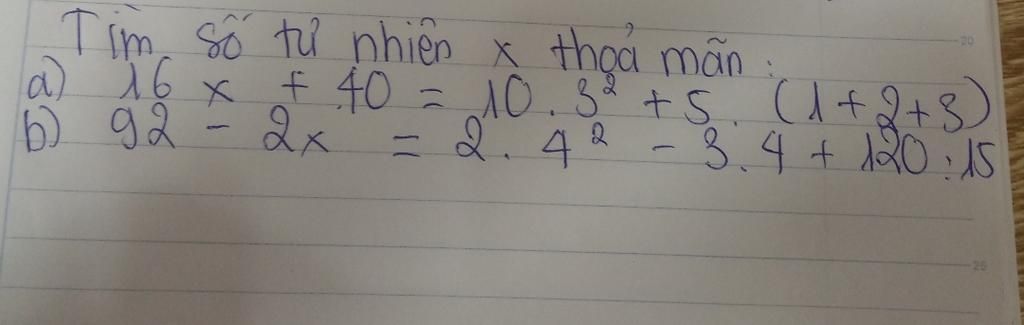 Tìm số tử nhiên x thoả mãn:
a) 16 x + 40 = 10. 3² + 5. (1 + 2 + 3)
b) 92 - 2x = 2. 4² - 3. 4 + 120 : 15
20
25